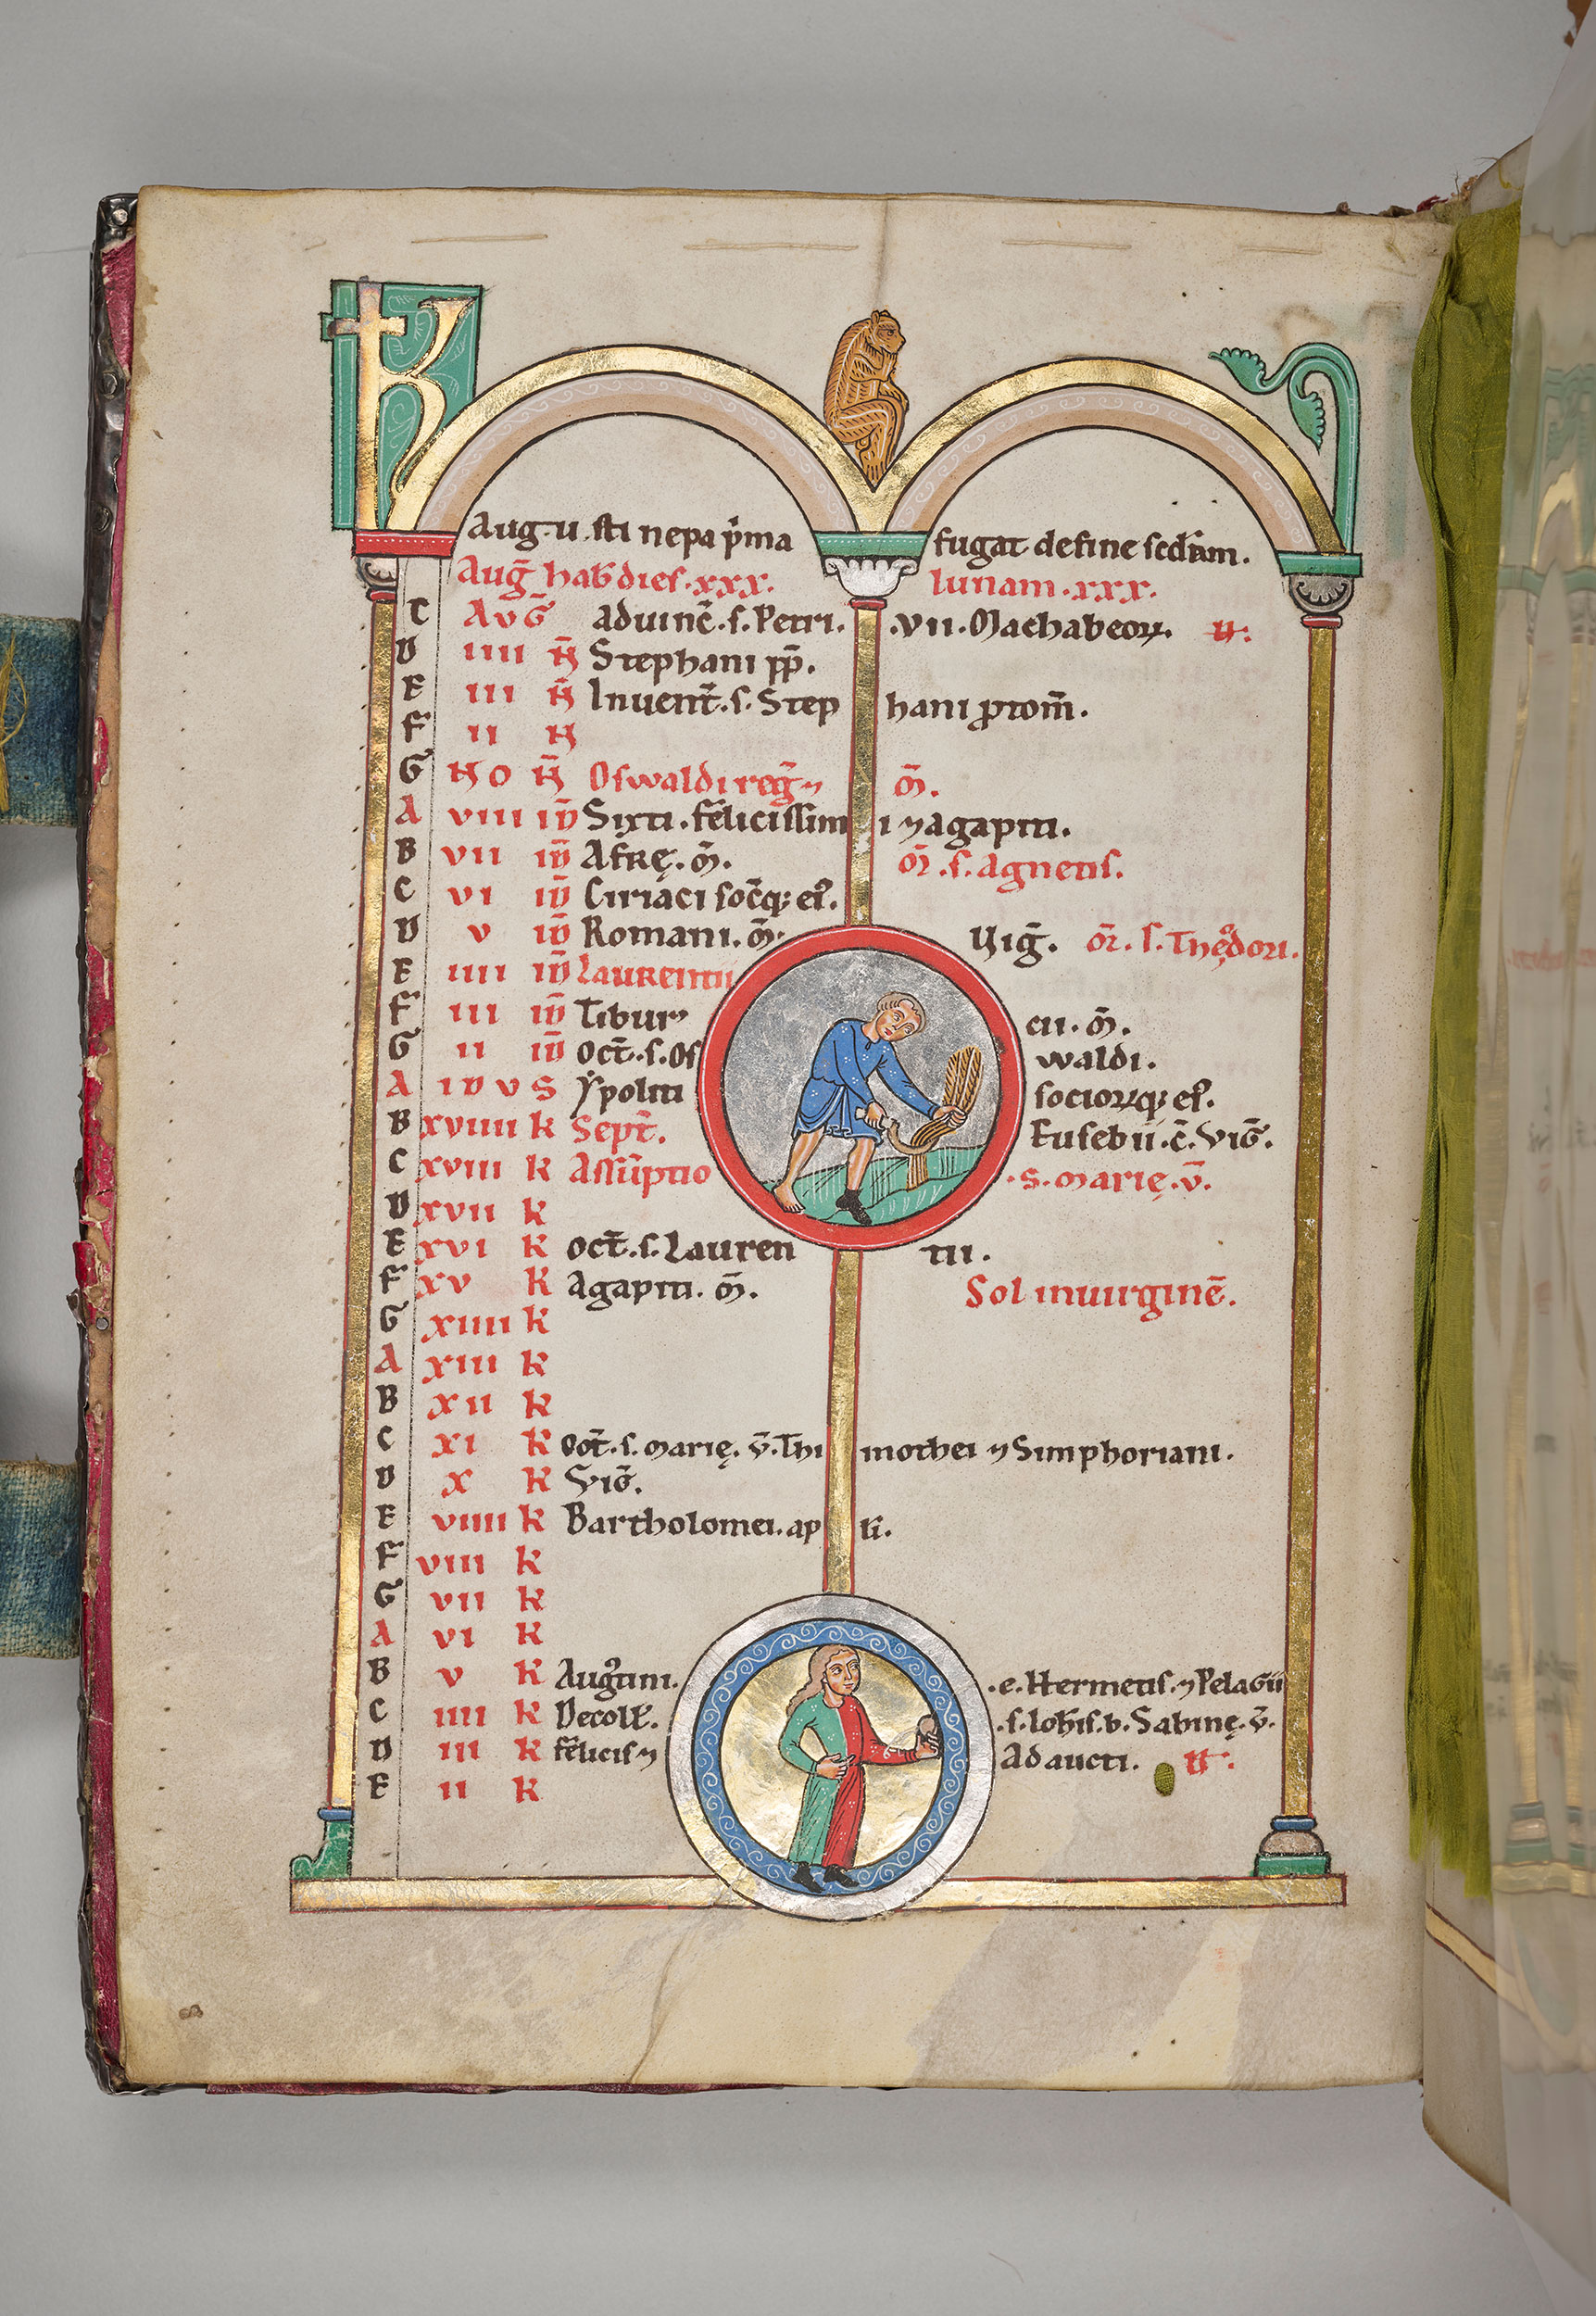 K
Aug.u.sti nepa p'ma fugat de fine scd'am.
Aug̅ hab̅ dies.xxx. lunam.xxx.
C AVG̅ aduinc̅.s.Petri. .VII.Machabeoꝝ.
D IIII N̅ Stephani pp̅.
E III N̅ Inuent̅.s.Step hani ꝓtom̅.
F II N
G NO N̅ Oswaldi reg̅ ⁊ m̅.
A VIII ID̅ Sixti.felicissim i ⁊ agapiti.
B VII ID̅ Afrę.m̅. oct̅.s.Agnetis.
C VI ID̅ Ciriaci soc̅q; ei'.
D V ID̅ Romani.m̅. Vig̅. s.Theodori.
E IIII ID̅ Laurentii
F III ID̅ Tibur cii.m̅.
G II ID̅ Oct̅.s.Os waldi.
A IDVS Ypoliti socioꝝq; ei'.
B XVIIII K Sept̅. Eusebii.c̅.Vig̅.
C XVIII K Assu̅ptio .S.Marię.v̅.
D XVII K
E XVI K Oct̅.s.Lauren tii.
F XV K Agapiti.m̅. Sol in uirgine̅.
G XIIII K
A XIII K
B XII K
C XI K Oct̅.s.Marię.v̅.Thi mothei ⁊ Simphoriani.
D X K Vig̅.
E VIIII K Bartholomei.ap l̅i.
F VIII K
G VII K
A VI K
B V K Aug'tini. .e.Hermetis.⁊ Pelagii
C IIII K Decoll'. .s.Ioh̅is.b.Sabinę.v̅.
D III K felicis ⁊ Adaucti.
E II K